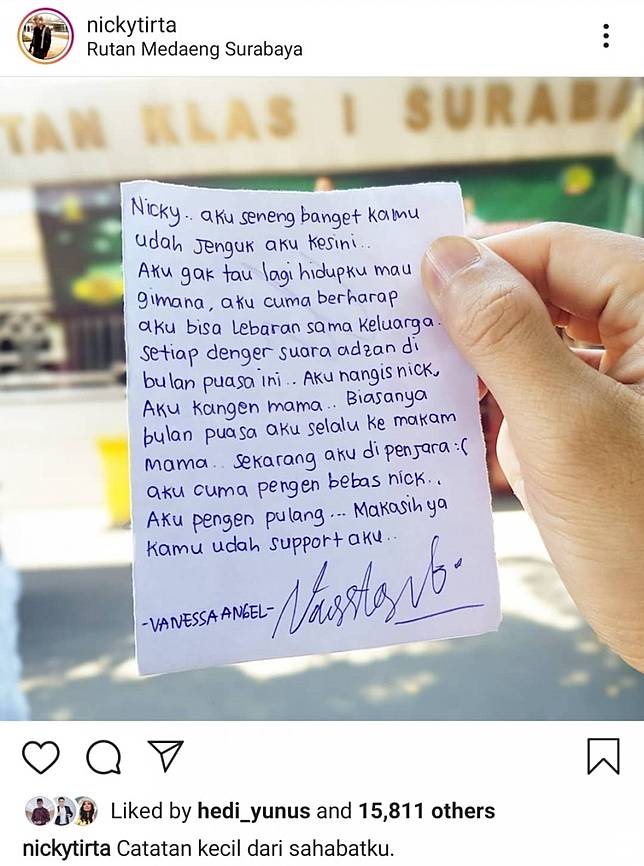 nickytirta
Rutan Medaeng Surabaya
TAN KLAS I SURABA
Nicky.. aku seneng banget kamu
udah jenguk aku kesini..
Aku gak tau lagi hidupku mau
gimana, aku cuma berharap
aku bisa Lebaran sama keluarga.
setiap denger suara adzan di
bulan puasa ini.. Aku nangis nick,
Aku kangen mama.. Biasanya
bulan puasa aku selalu ke makam
mama.. sekarang aku di penjara :(
aku cuma pengen bebas nick..
Aku pengen pulang... Makasih ya
kamu udah support aku..
-VANESSA ANGEL-
Liked by hedi_yunus and 15,811 others
nickytirta Catatan kecil dari sahabatku.